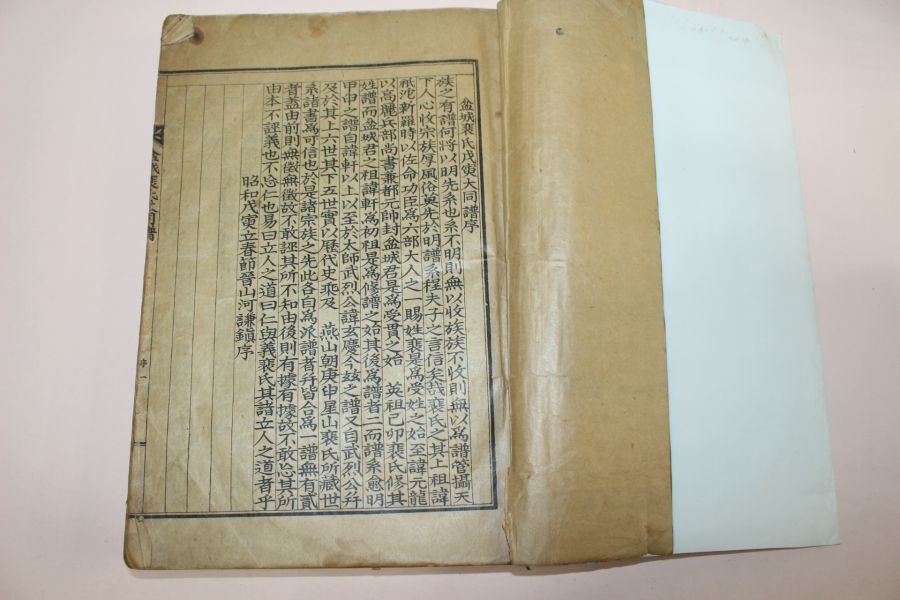 盆城裴氏戊寅大同譜序
族之有譜何將以明先系也系不明則無以收族族不收則無以爲譜管攝天
下人心收宗族厚風俗莫先於明譜系程夫子之言信矣哉裴氏之其上祖諱
祇沱新羅時以佐命功臣爲六部大人之一賜姓裴是爲受姓之始至諱元龍
以高麗兵部尚書兼都元帥封盆城君是爲受貫之始 英祖己卯裴氏修其
姓譜而盆城君之祖諱軒爲初祖是爲修譜之始其後爲譜者二而譜系愈明
甲申之譜自諱軒以上以至於太師武烈公諱玄慶今玆之譜又自武烈公幷
及於其上六世其下五世實以歷代史乘及 燕山朝庚申星山裴氏所藏世
系諸書爲可信也於是諸宗族之先此各自爲派譜者幷皆合爲一譜無有貳
者蓋由前則無徵無徵故不敢誣其所不知由後則有據有據故不敢忘其所
由本不誣義也不忘仁也易曰立人之道曰仁與義裴氏其諸立人之道者乎
昭和戊寅立春節晉山河謙鎭序
盆城裴氏世譜
序 一